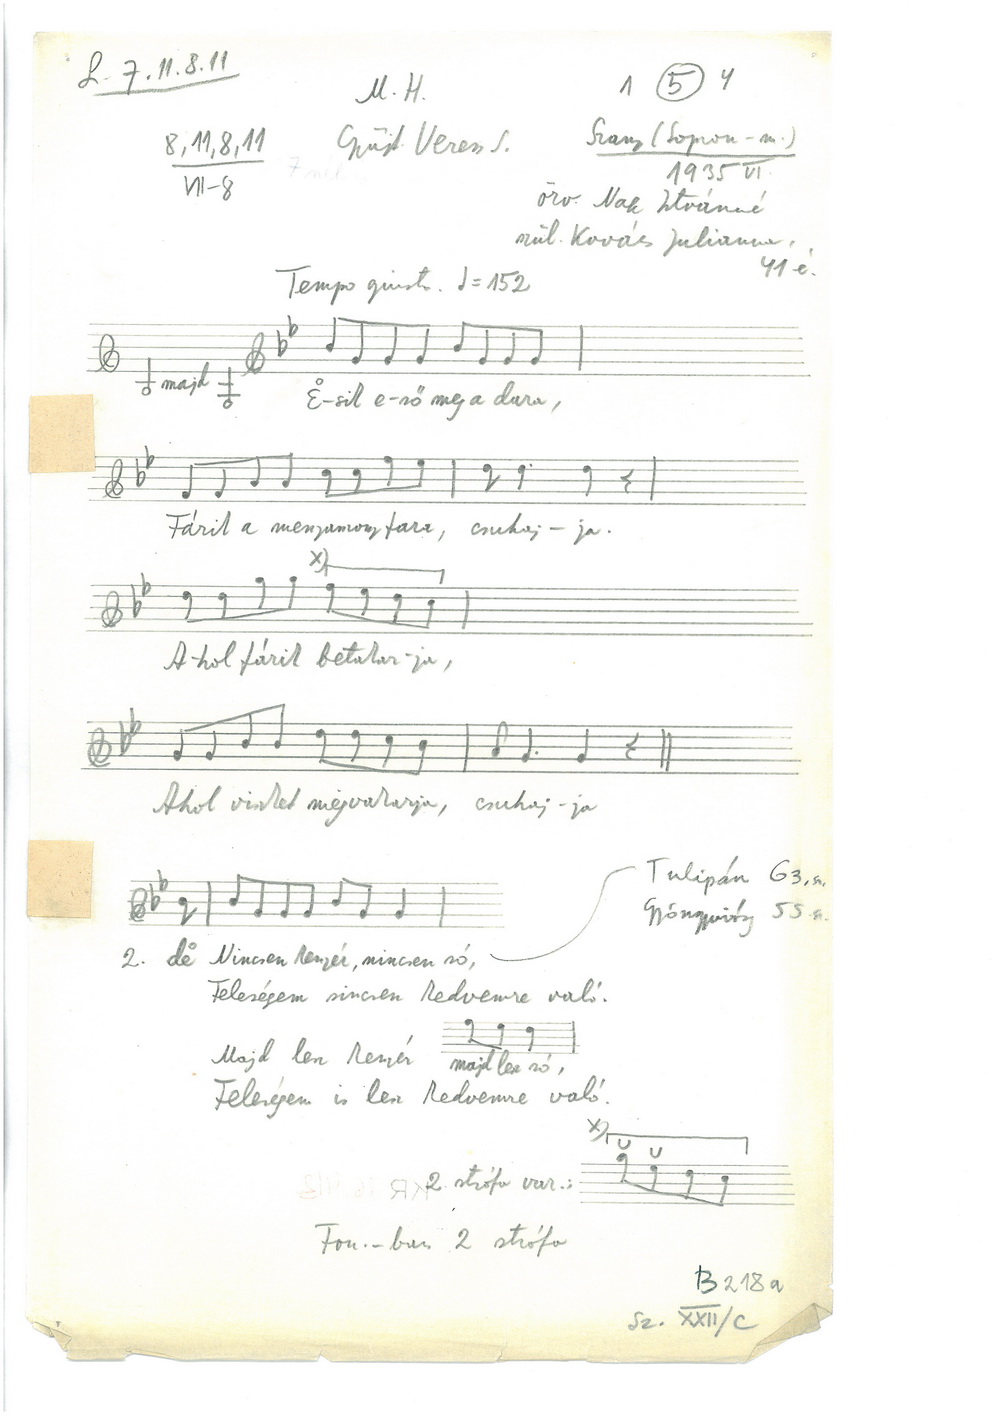 L. 7.11.8.11
M. H.
1 (5) 4
8, 11, 8, 11
VII-8
Gyűjt. Veress S.
Szany (Sopron-m.)
1935 VI.
özv. Nak Istvánné
szül. Kovács Julianna,
41 é.
Tempo giusto. ♩=152
majd
E̊-sik e-ső meg a dara,
Fázik a menyasszony fara, csuhaj-ja.
x)
A-hol fázik betakar-ja,
Ahol viszket megvakarja, csuhaj-ja
Tulipán 63. sz.
Gyöngyvirág 55 sz.
2. de̊ Nincsen kenyér, nincsen só,
Feleségem sincsen kedvemre való.
Majd lesz kenyér majd lesz só,
Feleségem is lesz kedvemre való.
x)
2 strófa var.:
Fon.-ban 2 strófa
B 218a
Sz. XXII/C